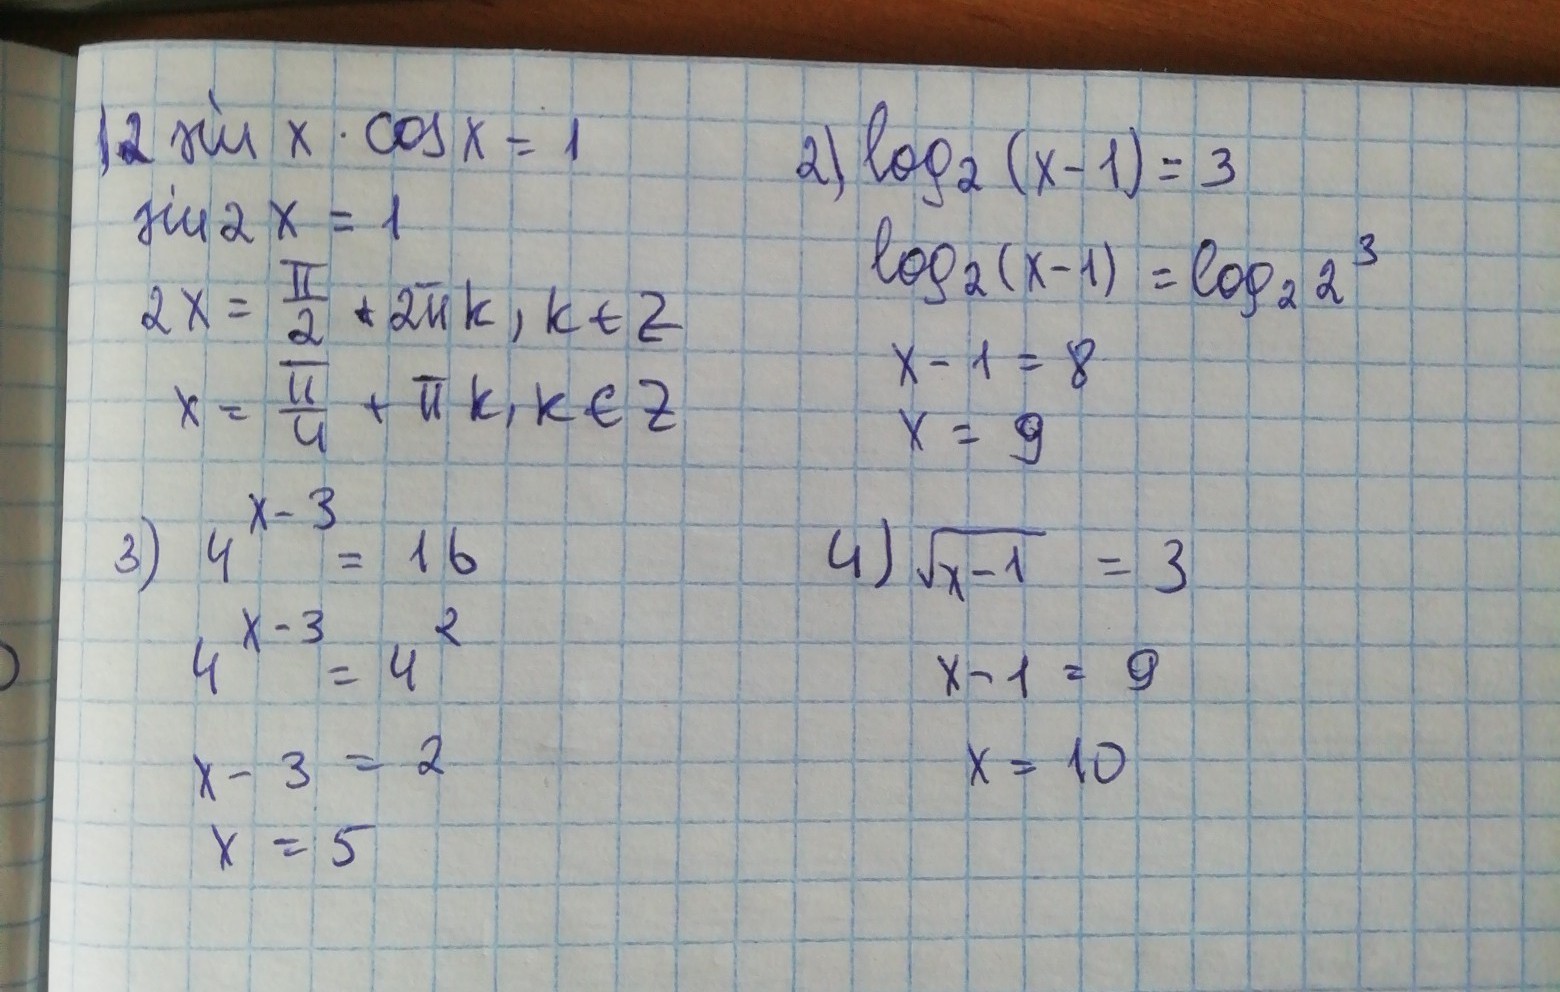 1) 2 sin x · cos x = 1
sin 2x = 1
2x = π/2 + 2πk, k ∈ Z
x = π/4 + πk, k ∈ Z
2) log₂(x-1) = 3
log₂(x-1) = log₂ 2³
x - 1 = 8
x = 9
3) 4^(x-3) = 16
4^(x-3) = 4²
x - 3 = 2
x = 5
4) √(x-1) = 3
x - 1 = 9
x = 10